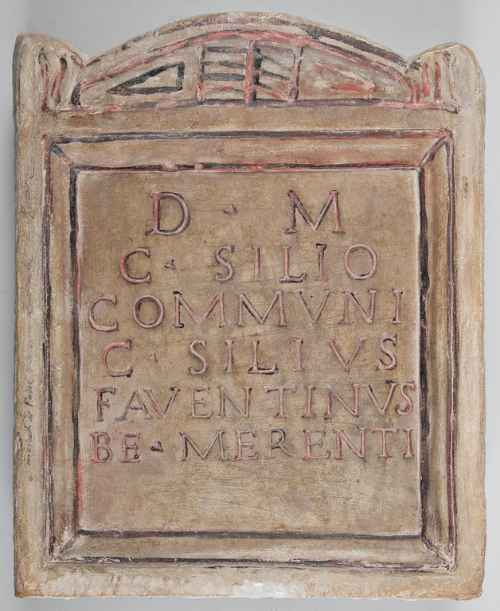 D · M
C · SILIO
COMMVNI
C · SILIVS
FAVENTINVS
BE · MERENTI